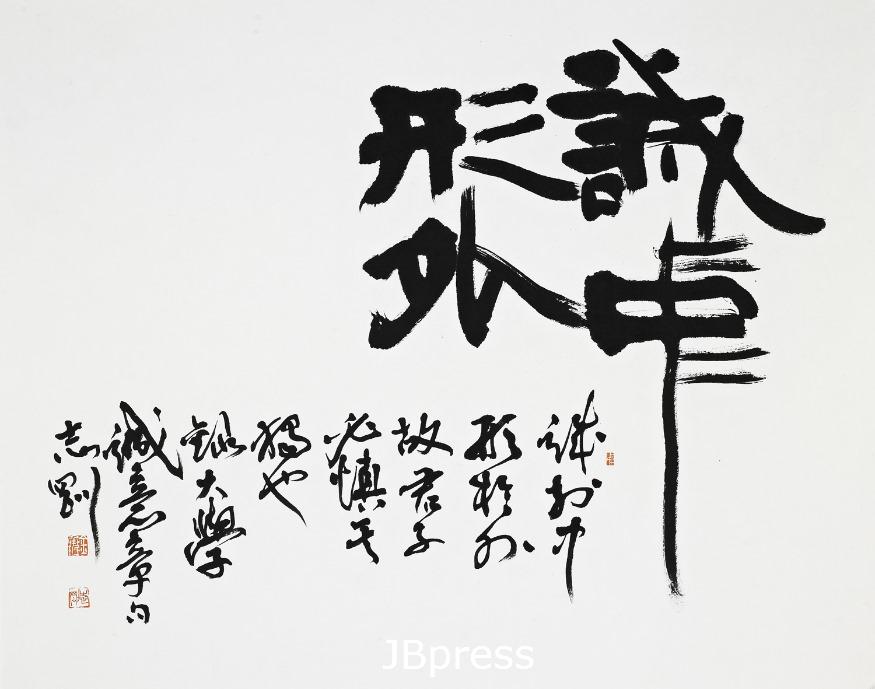 誠中
形外
誠於中
形於外
故君子
必慎其
獨也
錄大學
誠意章句
志剛
JBpress